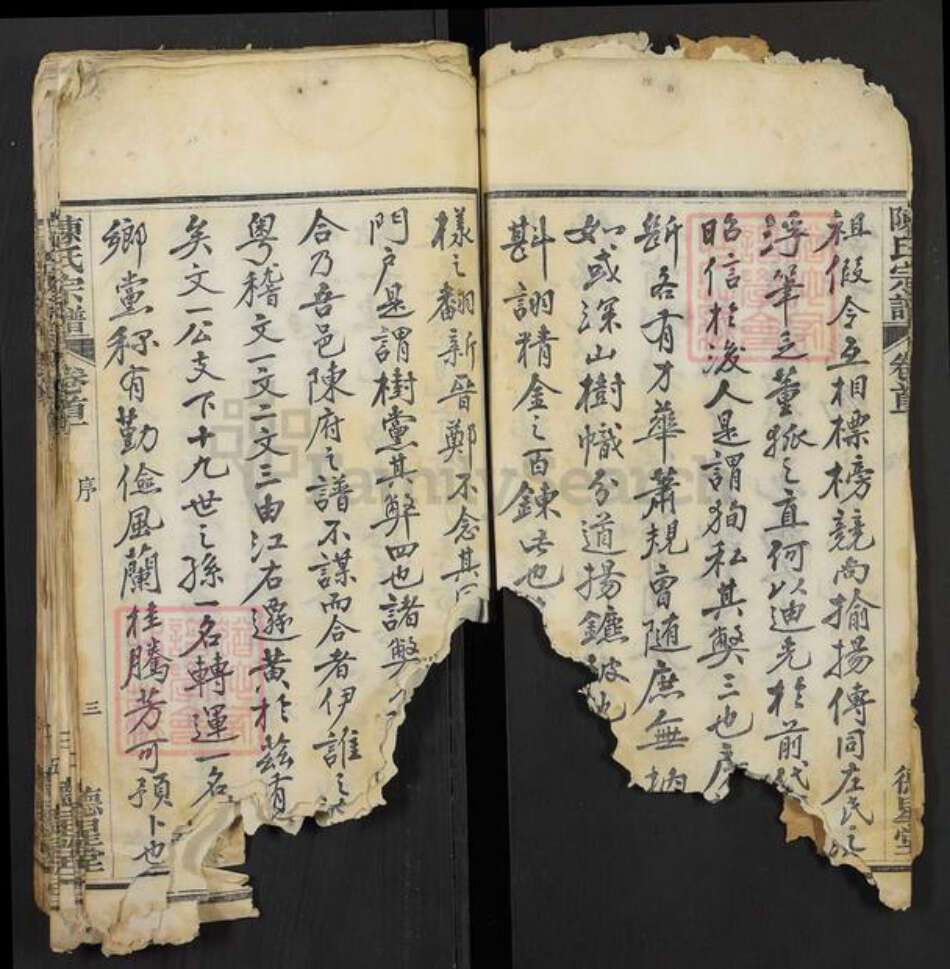 陳氏宗譜 卷首
祖假令互相標榜競尚揄揚傳同左氏之
浮筆乏董狐之直何以迪先於前代
昭信於後人是謂狥私其弊三也
斷各有才華蕭規曹隨庶無
如或深山樹幟分道揚鑣
斟詡精金之百鍊
樣之翻新晉鄭不念其
門戶是謂樹黨其弊四也諸弊
合乃吾邑陳府之譜不謀而合者伊誰之
粵稽文一文二文三由江右遷黃於茲有
矣文一公支下十九世之孫一名轉運一名
鄉黨稱有勤儉風蘭桂騰芳可預卜也
陳氏宗譜 卷首 序 三 德星堂
FamilySearch